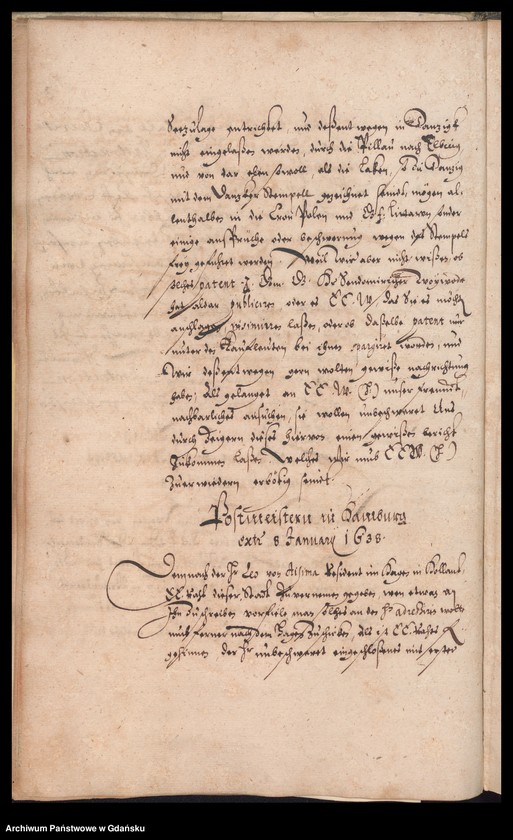 Seezulage entrichtet, und deßent wegen in Danzigk
nicht eingelaßen werden, durch die Pillau nach Elbing
und von dar eben sowoll als die Laken, so in Danzig
mit dem Danzker Stempell gezeichnet seindt, mögen al-
lenthalben in die Cron Polen und Littawen sonder
einige anspruche oder beschwerung wegen des Stempels
frey gefuhret werden. Weil wir aber nicht wißen, ob
solches patent Sendomirischer Woywode
hat alda publiciren oder es EE. W. das Sie es möcht
anschlagen, insinuiren laßen, oder ob daßelbe patent nur
unter den Kauffleuten bei ihnen spargiret worden, und
Wir deßent wegen gern wolten gewiße nachrichtung
haben; Als gelanget an EE. W. unser freundt-
nachbarliches ansuchen, sie wollen unbeschweret Uns
durch Zeigern dieses hiervon einen gewißen bericht
zukommen laßen. Welches wir umb EE. W.
zu erwiedern erbötig seindt.
Postmeistern in Hamburg
extr 8 January 1638.
Demnach der Hr Leo von Aitzma Resident im Hage in Hollant
EE. Raht dieser Stadt zuvernemen gegeben, wen etwas an
Ihn zuschreiben vorfiele man solches an den Hr
und ferner nach dem Hage zuschicken, Als ist EE. Rahts
gesinnen der Hr unbeschweret eingeschloßenes mit erster
Archiwum Państwowe w Gdańsku